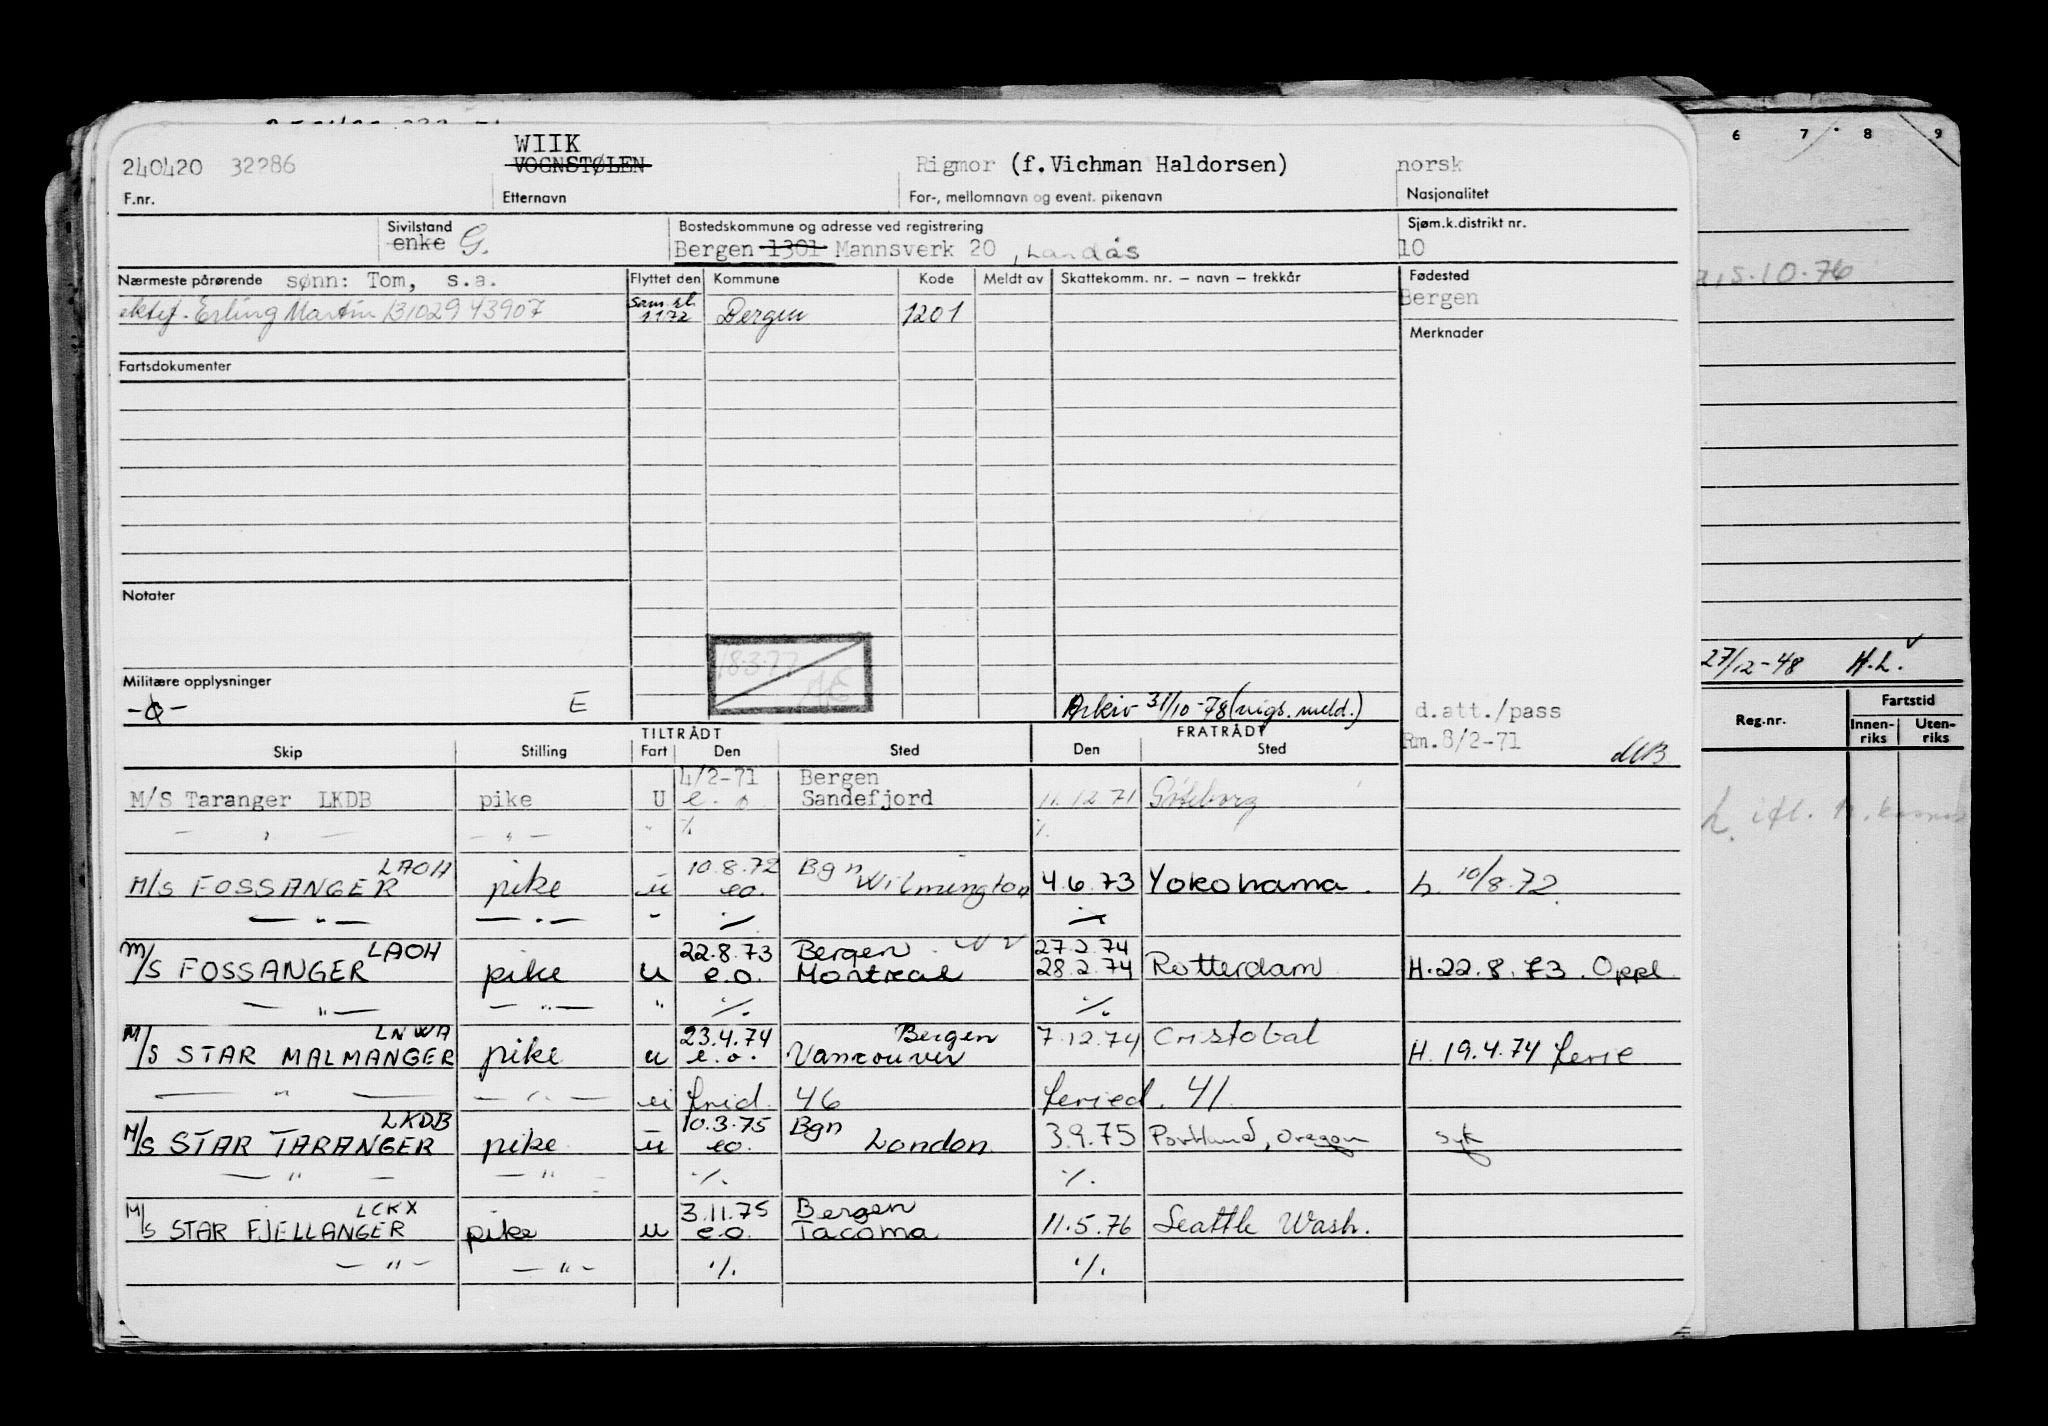 WIIK
240420 32286 VOGNSTØLEN Rigmor (f.Vichman Haldorsen) norsk
F.nr. Etternavn For-, mellomnavn og event. pikenavn Nasjonalitet
Sivilstand Bostedskommune og adresse ved registrering Sjøm.k.distrikt nr.
enke G. Bergen 1301 Mannsverk 20, Landås 10
Nærmeste pårørende sønn: Tom, s.a. Flyttet den Kommune Kode Meldt av Skattekomm. nr. – navn – trekkår Fødested
Bergen
ektef. Erling Martin 131029 43907 1172 Bergen 1201
Merknader
Fartsdokumenter
Notater
18.3.77
Militære opplysninger
E Arkiv 31/10-78 d.att./pass
Rm.8/2-71
TILTRÅDT FRATRÅDT
Skip Stilling Fart Den Sted Den Sted
4/2-71 Bergen
M/S Taranger LKDB pike U e.o Sandefjord 11.12.71 Göteborg
— " — — " — " ./. ./.
LAOH 10.8.72 Bgn
M/S FOSSANGER pike u eo. Wilmington 4.6.73 Yokohama. h. 10/8.72.
— " — — " — " ./. ./.
LAOH 22.8.73 Bergen 27.2.74
M/S FOSSANGER pike u e.o. Montreal 28.2.74 Rotterdam H.22.8.73. Oppl.
— " — — " — " ./. ./.
LNWA 23.4.74 Bergen 7.12.74 Cristobal
M/S STAR MALMANGER pike u e.o. Vancouver H. 19.4.74 ferie
— " — — " — ui frid. 46 feried. 41.
LKDB 10.3.75 Bgn
M/S STAR TARANGER pike u eo. London 3.9.75 Portland, Oregon syk
— " — — " — ./. ./.
LCKX 3.11.75 Bergen
M/S STAR FJELLANGER pike u e.o. Tacoma 11.5.76 Seattle Wash.
— " — — " — ./. ./.
6 7 8 9
15.10.76
27/12-48 H.L.
Reg.nr. Fartstid
Innen-riks Uten-riks